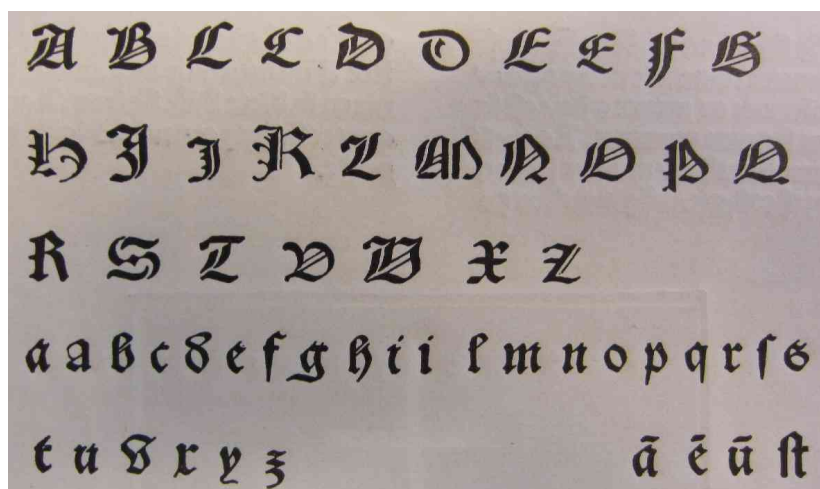 A B C C D D E E F G
H J J K L M N O P Q
R S T V W X Z
a a b c d e f g h i i l m n o p q r ſ s
t u v x y z ā ē ū ſt